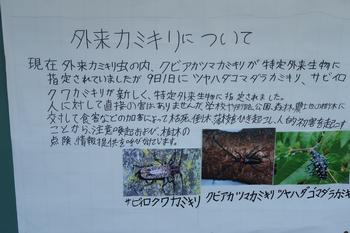 外来カミキリについて
現在 外来カミキリ虫の内、クビアカツヤカミキリが特定外来生物に
指定されていましたが 9月1日に ツヤハダゴマダラカミキリ、サビイロ
クワカミキリが新しく、特定外来生物に 指定されました。
人に対して直接の害はありませんが、学校や 公園、森林、樹木に
対して食害などの加害によって枯死、倒木、落枝を引き起こし、人的
ことから、注意喚起および、樹木の
点検、情報提供を呼びかけています。
サビイロクワカミキリ クビアカツヤカミキリ ツヤハダゴマダラカミキリ